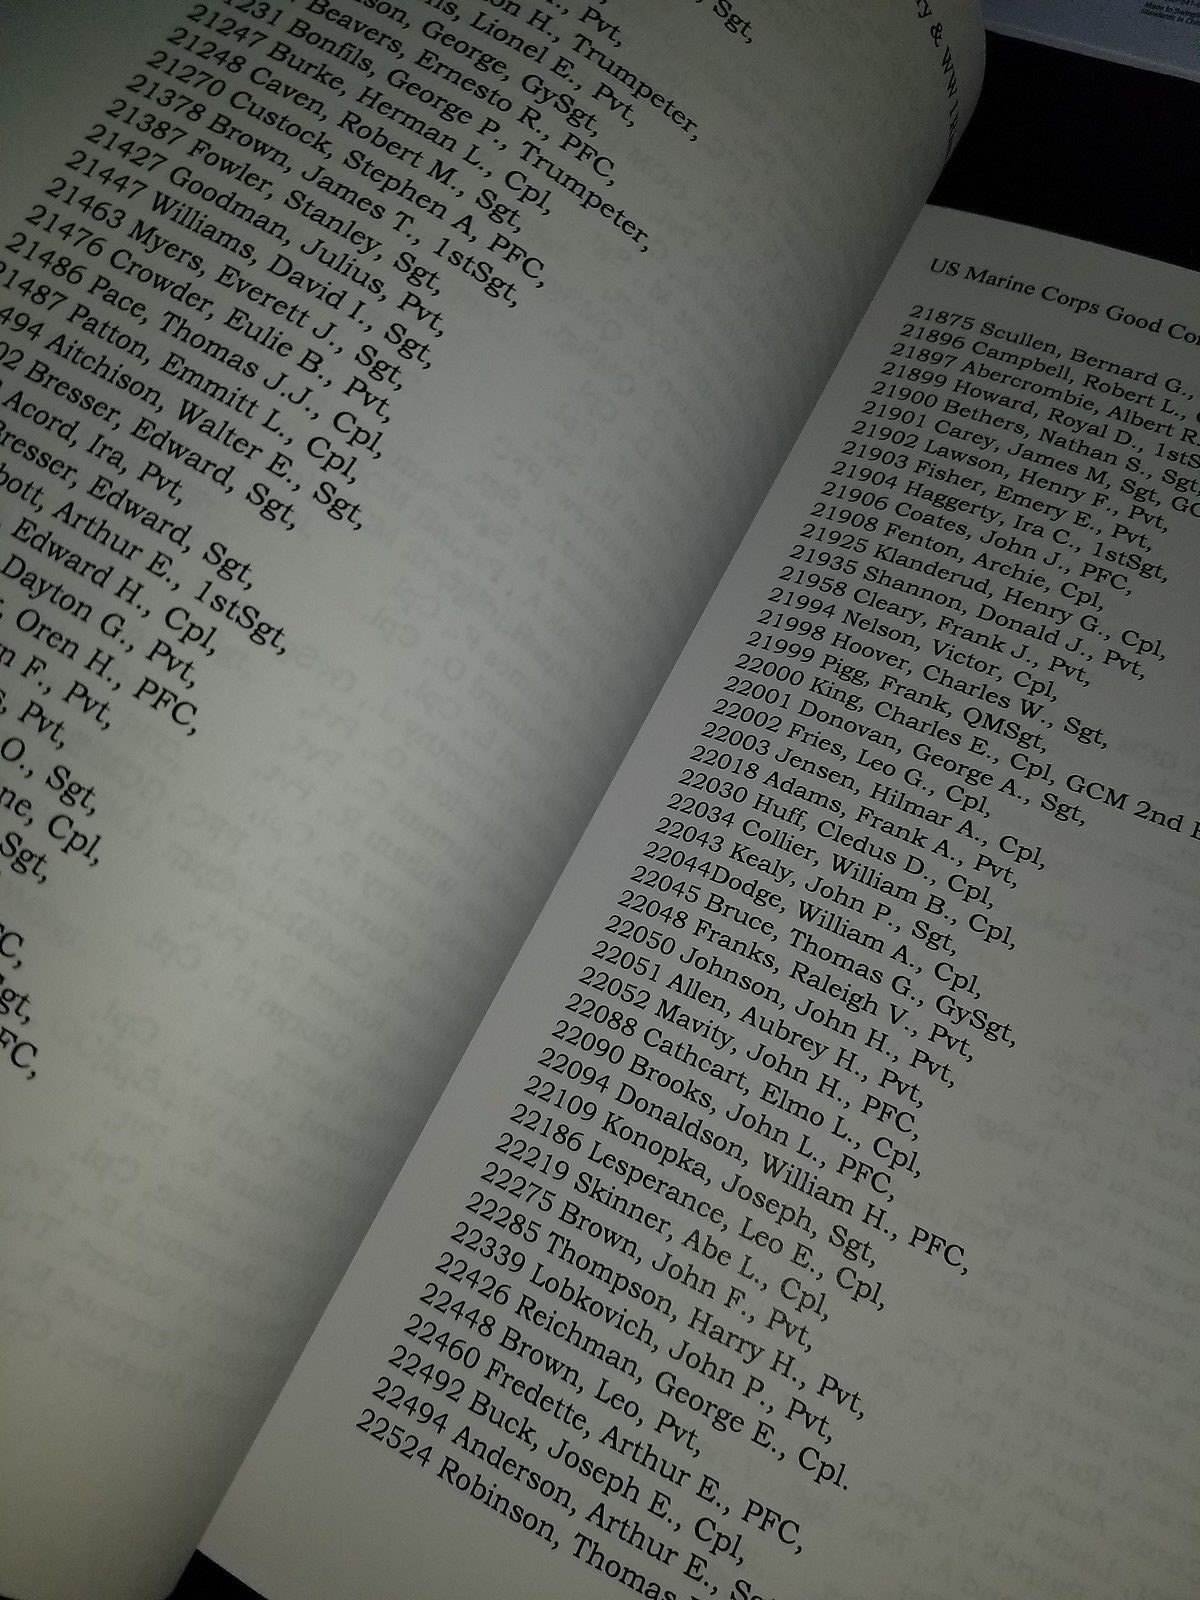 Sgt,
Pvt,
H., Trumpeter,
Lionel E., Pvt,
George, GySgt,
Beavers, Ernesto R., PFC,
1231 Bonfils, George P., Trumpeter,
21247 Burke, Herman L., Cpl,
21248 Caven, Robert M., Sgt,
21270 Custock, Stephen A, PFC,
21378 Brown, James T., 1stSgt,
21387 Fowler, Stanley, Sgt,
21427 Goodman, Julius, Pvt,
21447 Williams, David I., Sgt,
21463 Myers, Everett J., Sgt,
21476 Crowder, Eulie B., Pvt,
21486 Pace, Thomas J.J., Cpl,
21487 Patton, Emmitt L., Cpl,
494 Aitchison, Walter E., Sgt,
02 Bresser, Edward, Sgt,
Acord, Ira, Pvt,
Bresser, Edward, Sgt,
bott, Arthur E., 1stSgt,
Edward H., Cpl,
Dayton G., Pvt,
Oren H., PFC,
n F., Pvt,
Pvt,
O., Sgt,
ne, Cpl,
Sgt,
FC,
Sgt,
FC,
& WW I
US Marine Corps Good Co
21875 Scullen, Bernard G.,
21896 Campbell, Robert L.,
21897 Abercrombie, Albert R.
21899 Howard, Royal D., 1stS
21900 Bethers, Nathan S., Sgt,
21901 Carey, James M, Sgt, GC
21902 Lawson, Henry F., Pvt,
21903 Fisher, Emery E., Pvt,
21904 Haggerty, Ira C., 1stSgt,
21906 Coates, John J., PFC,
21908 Fenton, Archie, Cpl,
21925 Klanderud, Henry G., Cpl,
21935 Shannon, Donald J., Pvt,
21958 Cleary, Frank J., Pvt,
21994 Nelson, Victor, Cpl,
21998 Hoover, Charles W., Sgt,
21999 Pigg, Frank, QMSgt,
22000 King, Charles E., Cpl, GCM 2nd
22001 Donovan, George A., Sgt,
22002 Fries, Leo G., Cpl,
22003 Jensen, Hilmar A., Cpl,
22018 Adams, Frank A., Pvt,
22030 Huff, Cledus D., Cpl,
22034 Collier, William B., Cpl,
22043 Kealy, John P., Sgt,
22044Dodge, William A., Cpl,
22045 Bruce, Thomas G., GySgt,
22048 Franks, Raleigh V., Pvt,
22050 Johnson, John H., Pvt,
22051 Allen, Aubrey H., Pvt,
22052 Mavity, John H., PFC,
22088 Cathcart, Elmo L., Cpl,
22090 Brooks, John L., PFC,
22094 Donaldson, William H., PFC,
22109 Konopka, Joseph, Sgt,
22186 Lesperance, Leo E., Cpl,
22219 Skinner, Abe L., Cpl,
22275 Brown, John F., Pvt,
22285 Thompson, Harry H., Pvt,
22339 Lobkovich, John P., Pvt,
22426 Reichman, George E., Cpl.
22448 Brown, Leo, Pvt,
22460 Fredette, Arthur E., PFC,
22492 Buck, Joseph E., Cpl,
22494 Anderson, Arthur E., Sg
22524 Robinson, Thomas